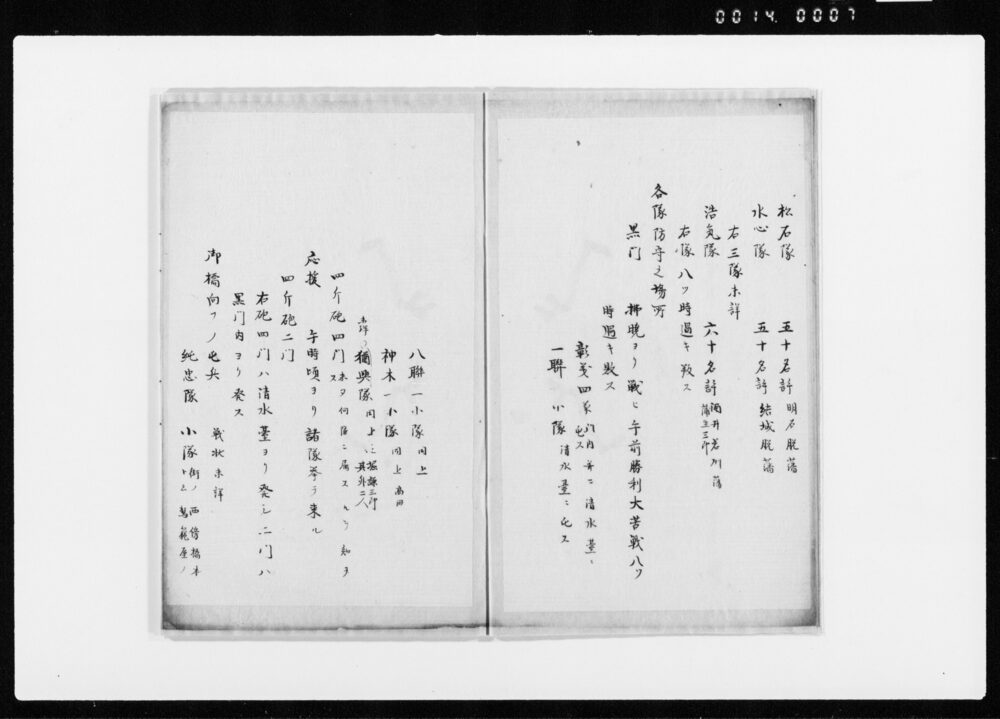 0014.0007
松石隊 五十名許 明石脱藩
水心隊 五十名許 結城脱藩
右三隊未詳
浩気隊 六十名許 酒井若州藩
蒲生三郎
右隊八ツ時過キ敗ス
各隊防守之場所
黒門 拂暁ヨリ戦ヒ午前勝利大苦戦八ツ
時過キ敗ス
彰義四 門内并ニ清水臺ニ
屯ス
一聯 小隊 清水臺ニ屯ス
八聯一小隊 同上
神木一小隊 同上 高田
獨興隊 同上
其外二人
四斤砲四門 未タ何隊ニ属スルヲ知ラ
ス
応援 午時頃ヨリ諸隊挙テ来ル
四斤砲二门
右砲四门ハ清水臺ヨリ発シ二门ハ
黒门内ヨリ発ス
御橋向フノ屯兵 戦状未詳
純忠隊 小隊